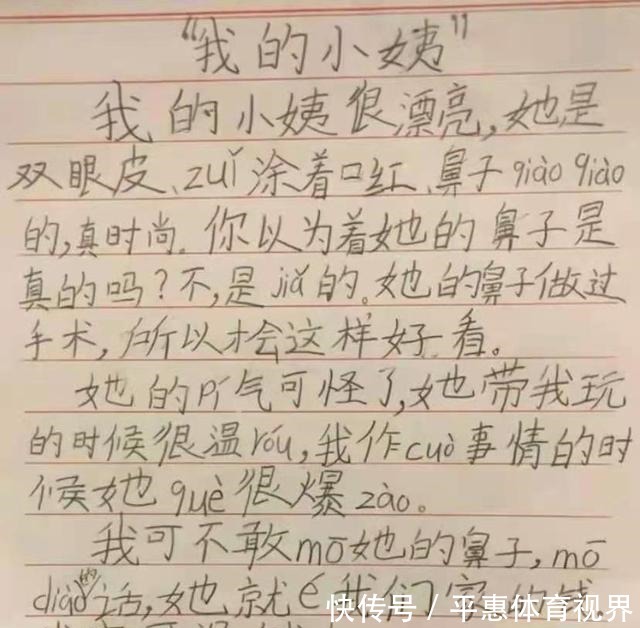 “我的小姨”
我的小姨很漂亮,她是
双眼皮、zuǐ涂着口红、鼻子qiào qiào
的,真时尚。你以为着她的鼻子是
真的吗?不,是jiǎ的。她的鼻子做过
手术,所以才会这样好看。
她的pí气可怪了,她带我玩
的时候很温róu,我作cuò事情的时
候她què很爆zào。
我可不敢mō她的鼻子,mō
diào的话,她就é我们家的钱
快传号/平惠体育视界